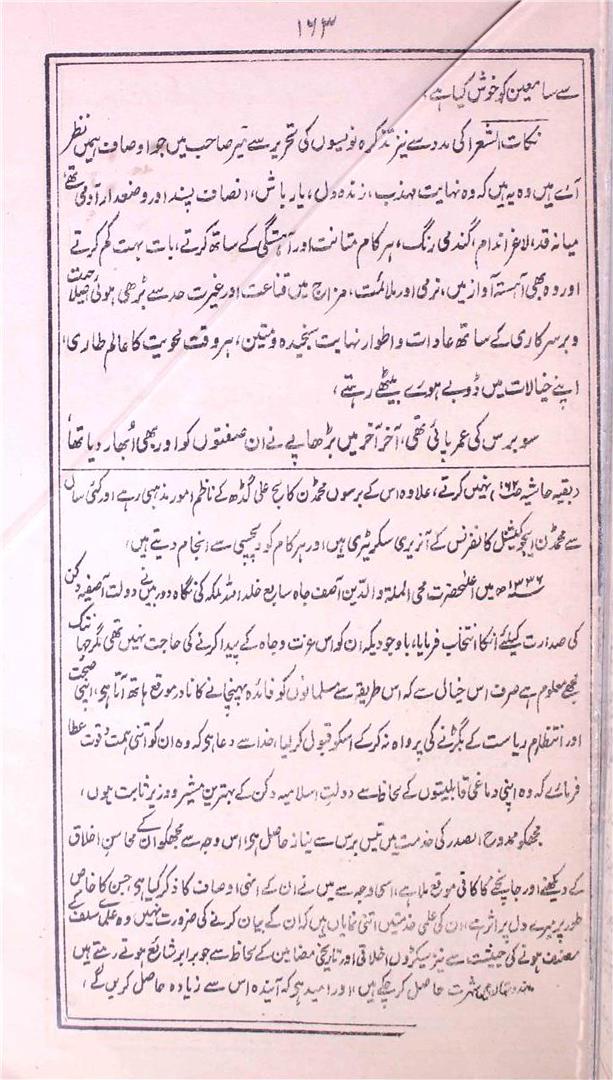 ۱۶۳
سے سامعین کو خوش کیا ہے،
نکات الشعرا کی مدد سے نیز تذکرہ نویسوں کی تحریر سے میر صاحب میں جو اوصاف ہمیں نظر
آئے ہیں وہ یہ ہیں کہ وہ نہایت مہذب، زندہ دل، یار باش، انصاف پسند اور وضعدار آدمی تھے
میانہ قد، لاغر اندام، گندمی رنگ، ہر کام متانت اور آہستگی کے ساتھ کرتے، بات بہت کم کرتے
اور وہ بھی آہستہ آواز میں، نرمی اور ملائمت، مزاج میں قناعت اور غیرت حد سے بڑھی ہوئی صلاحیت
و پرہیزگاری کے ساتھ عادات و اطوار نہایت سنجیدہ و متین، ہر وقت محویت کا عالم طاری،
اپنے خیالات میں ڈوبے ہوے بیٹھے رہتے،
سو برس کی عمر پائی تھی، آخر آخر میں بڑھاپے نے ان صفتوں کو اور بھی اُبھار دیا تھا
(بقیہ حاشیہ ص۱۶۲) نہیں کرتے، علاوہ اس کے برسوں محمڈن کالج علی گڈھ کے ناظم امور مذہبی رہے اور کئی سال
سے محمڈن ایجوکیشنل کانفرنس کے آنریری سکریٹری ہیں اور ہر کام کو دلچسپی سے انجام دیتے ہیں،
۱۳۳۶ھ میں اعلیٰحضرت محی الملۃ والدین آصف جاہ سابع خلد اللہ ملکہ کی نگاہ دور بین نے دولت آصفیہ دکن
کی صدارت کیلئے انکا انتخاب فرمایا، باوجودیکہ ان کو اس عزت و جاہ کے پیدا کرنے کی حاجت نہیں تھی مگر جہانتک
مجھے معلوم ہے صرف اس خیال سے کہ اس طریقے سے مسلمانوں کو فائدہ پہنچانے کا نادر موقع ہاتھ آتا ہی، اپنی صحت
اور انتظام ریاست کے بگڑنے کی پرواہ نہ کر کے اسکو قبول کر لیا، خدا سے دعا ہی کہ وہ ان کو اتنی ہمت و قوت عطا
فرمائے کہ وہ اپنی دماغی قابلیتوں کے لحاظ سے دولت اسلامیہ دکن کے بہترین مشیر و وزیر ثابت ہوں،
مجھکو ممدوح الصدر کی خدمت میں تیس برس سے نیاز حاصل ہی، اس وجہ سے مجھکو ان کے محاسن اخلاق
کے دیکھنے اور جانچنے کا کافی موقع ملا ہے، اسی وجہ سے میں نے ان کے انہی اوصاف کا ذکر کیا ہی، جس کا خاص
طور پر میرے دل پر اثر ہے، ان کی علمی خدمتیں اتنی نمایاں ہیں کہ ان کے بیان کرنے کی ضرورت نہیں وہ علمائے سلف کے
مصنف ہونے کی حیثیت سے نیز سیکڑوں اخلاقی اور تاریخی مضامین کے لحاظ سے جو برابر شائع ہوتے رہتے ہیں
شہرت حاصل کر چکے ہیں، اور امید ہی کہ آیندہ اس سے زیادہ حاصل کریں گے،